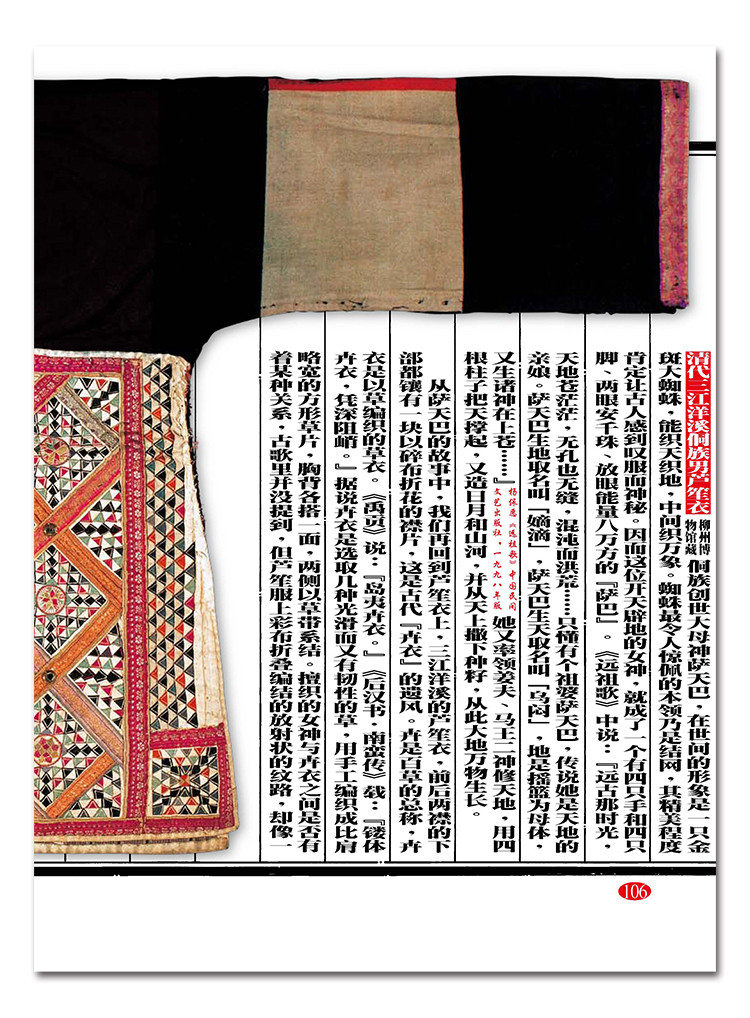 清代三江洋溪侗族男芦笙衣 柳州博物馆藏 侗族创世大母神萨天巴，在世间的形象是一只金
斑大蜘蛛，能织天织地，中间织万象。蜘蛛最令人惊佩的本领乃是结网，其精美程度
肯定让古人感到叹服而神秘。因而这位开天辟地的女神，就成了一个有四只手和四只
脚、两眼安千珠、放眼能量八万方的『萨巴』。《远祖歌》中说：『远古那时光，
天地苍茫茫，无孔也无缝，混沌而洪荒……只懂有个祖婆萨天巴，传说她是天地的
亲娘。萨天巴生地取名叫「嫡滴」，萨天巴生天取名叫「乌闷」，地是摇篮为母体，
又生诸神在上苍……』杨保愿《远祖歌》中国民间文艺出版社，一九九八年版 她又率领姜夫、马王二神修天地，用四
根柱子把天撑起，又造日月和山河，并从天上撒下种籽，从此大地万物生长。
从萨天巴的故事中，我们再回到芦笙衣上，三江洋溪的芦笙衣，前后两襟的下
部都镶有一块以碎布折花的襟片，这是古代『卉衣』的遗风。卉是百草的总称，卉
衣是以草编织的草衣。《禹贡》说：『岛夷卉衣。』《后汉书·南蛮传》载：『镂体
卉衣，凭深阻峭。』据说卉衣是选取几种光滑而又有韧性的草，用手工编织成比肩
略宽的方形草片，胸背各搭一面，两侧以草带系结。擅织的女神与卉衣之间是否有
着某种关系，古歌里并没提到，但芦笙服上彩布折叠编结的放射状的纹路，却像一
106